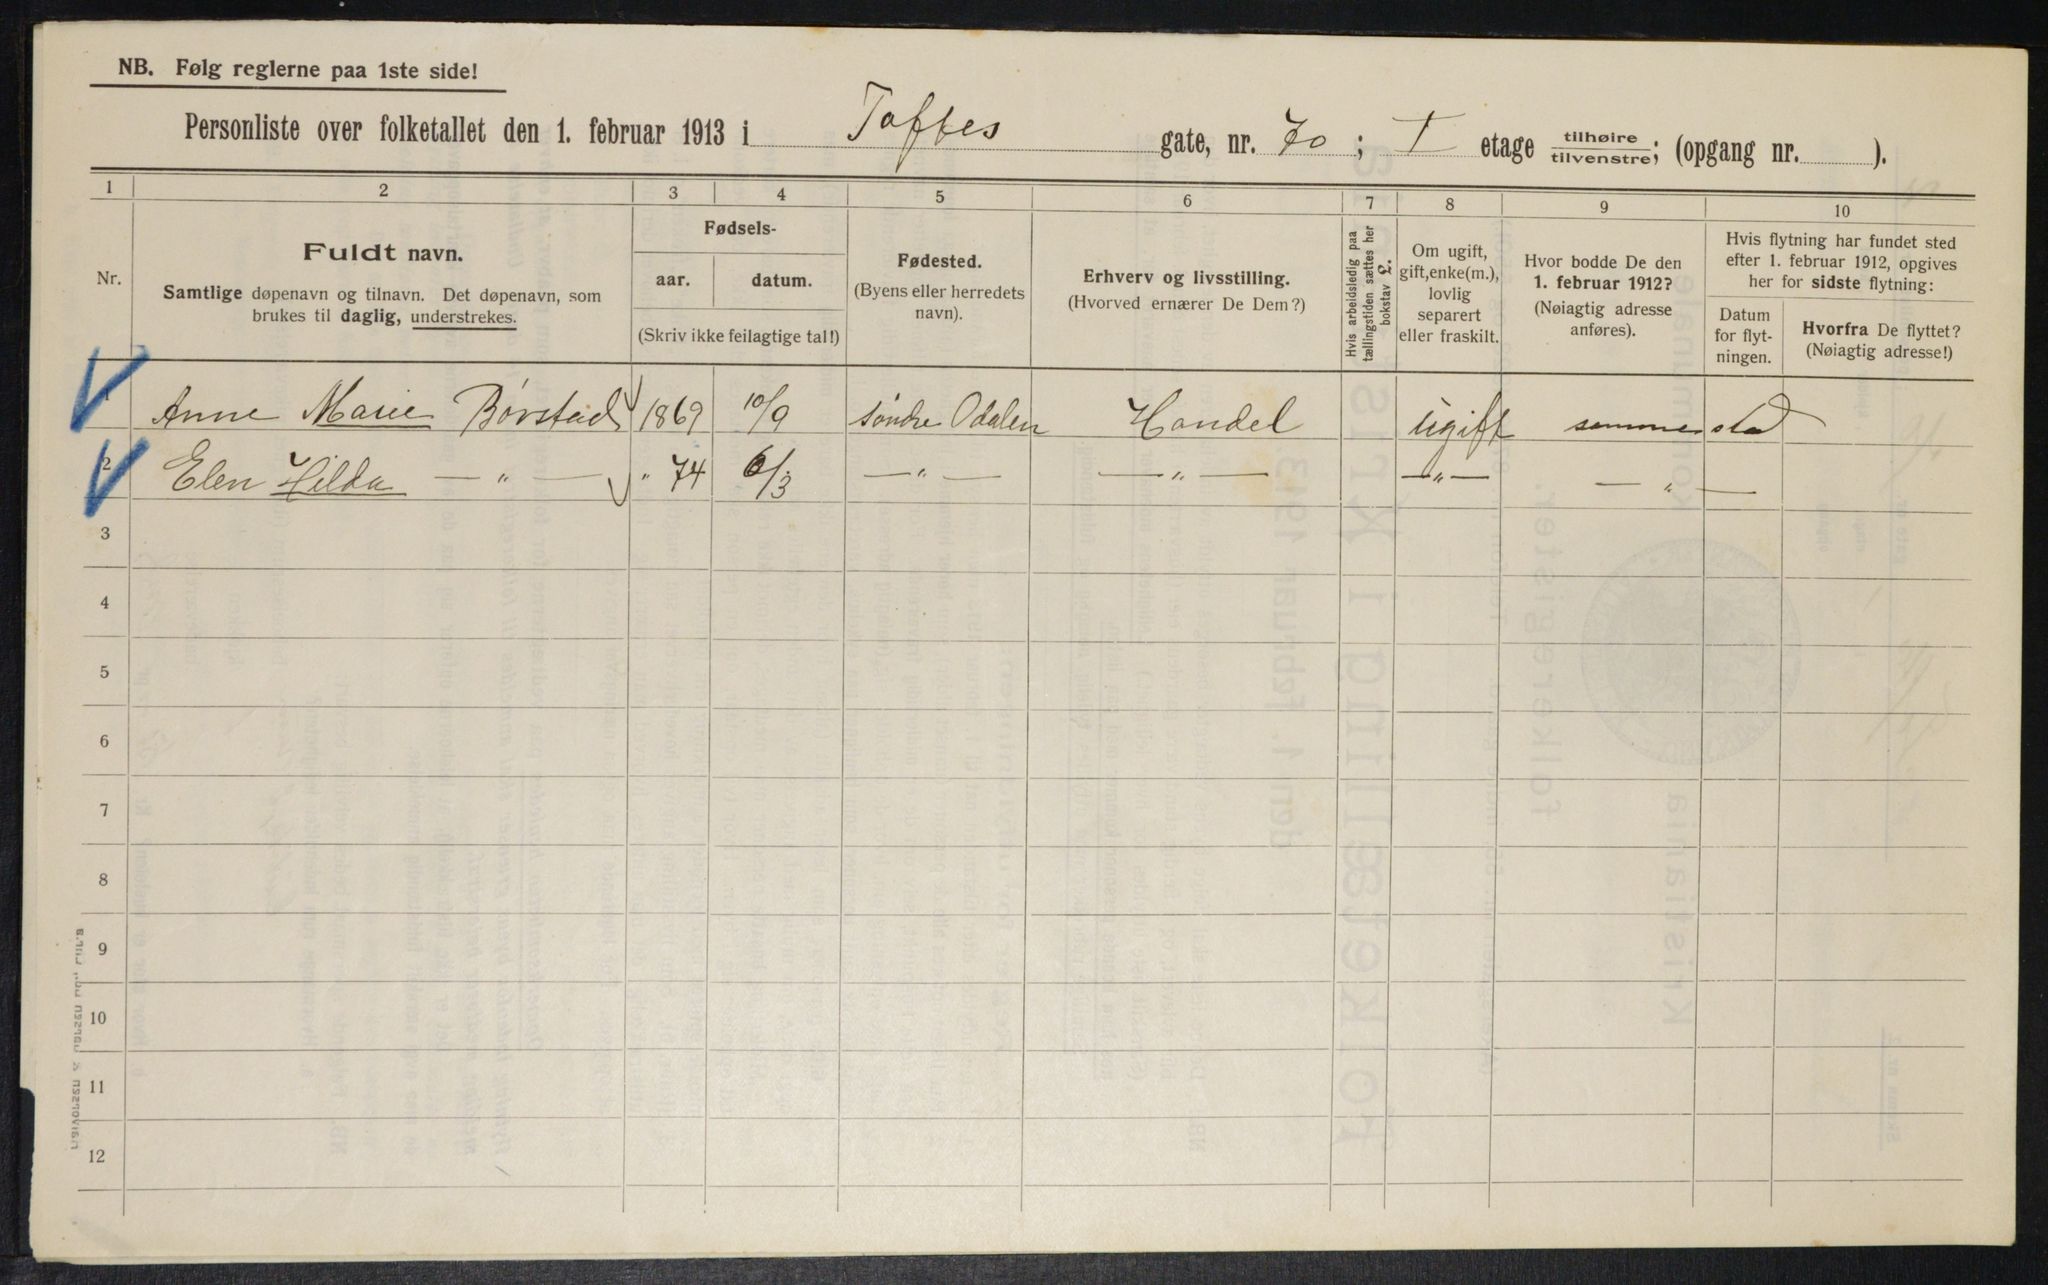 NB. Følg reglerne paa 1ste side!
Personliste over folketallet den 1. februar 1913 i Toftes gate, nr. 70 ; I etage tilhøire/tilvenstre; (opgang nr. ).
1 2 3 4 5 6 7 8 9 10
Nr.
Fuldt navn.
Samtlige døpenavn og tilnavn. Det døpenavn, som
brukes til daglig, understrekes.
Fødsels-
aar. datum.
(Skriv ikke feilagtige tal!)
Fødested.
(Byens eller herredets
navn).
Erhverv og livsstilling.
(Hvorved ernærer De Dem?)
Hvis arbeidsledig paa
tællingstiden sættes her
bokstav L.
Om ugift,
gift, enke(m.),
lovlig
separert
eller fraskilt.
Hvor bodde De den
1. februar 1912?
(Nøiagtig adresse
anføres).
Hvis flytning har fundet sted
efter 1. februar 1912, opgives
her for sidste flytning:
Datum
for flyt-
ningen.
Hvorfra De flyttet?
(Nøiagtig adresse!)
1 Anne Marie Børstad 1869 10/9 søndre Odalen Handel ugift samme sted
2 Elen Hilda — „ — " 74 6/3 — „ — — „ — — „ — — „ —
3
4
5
6
7
8
9
10
11
12